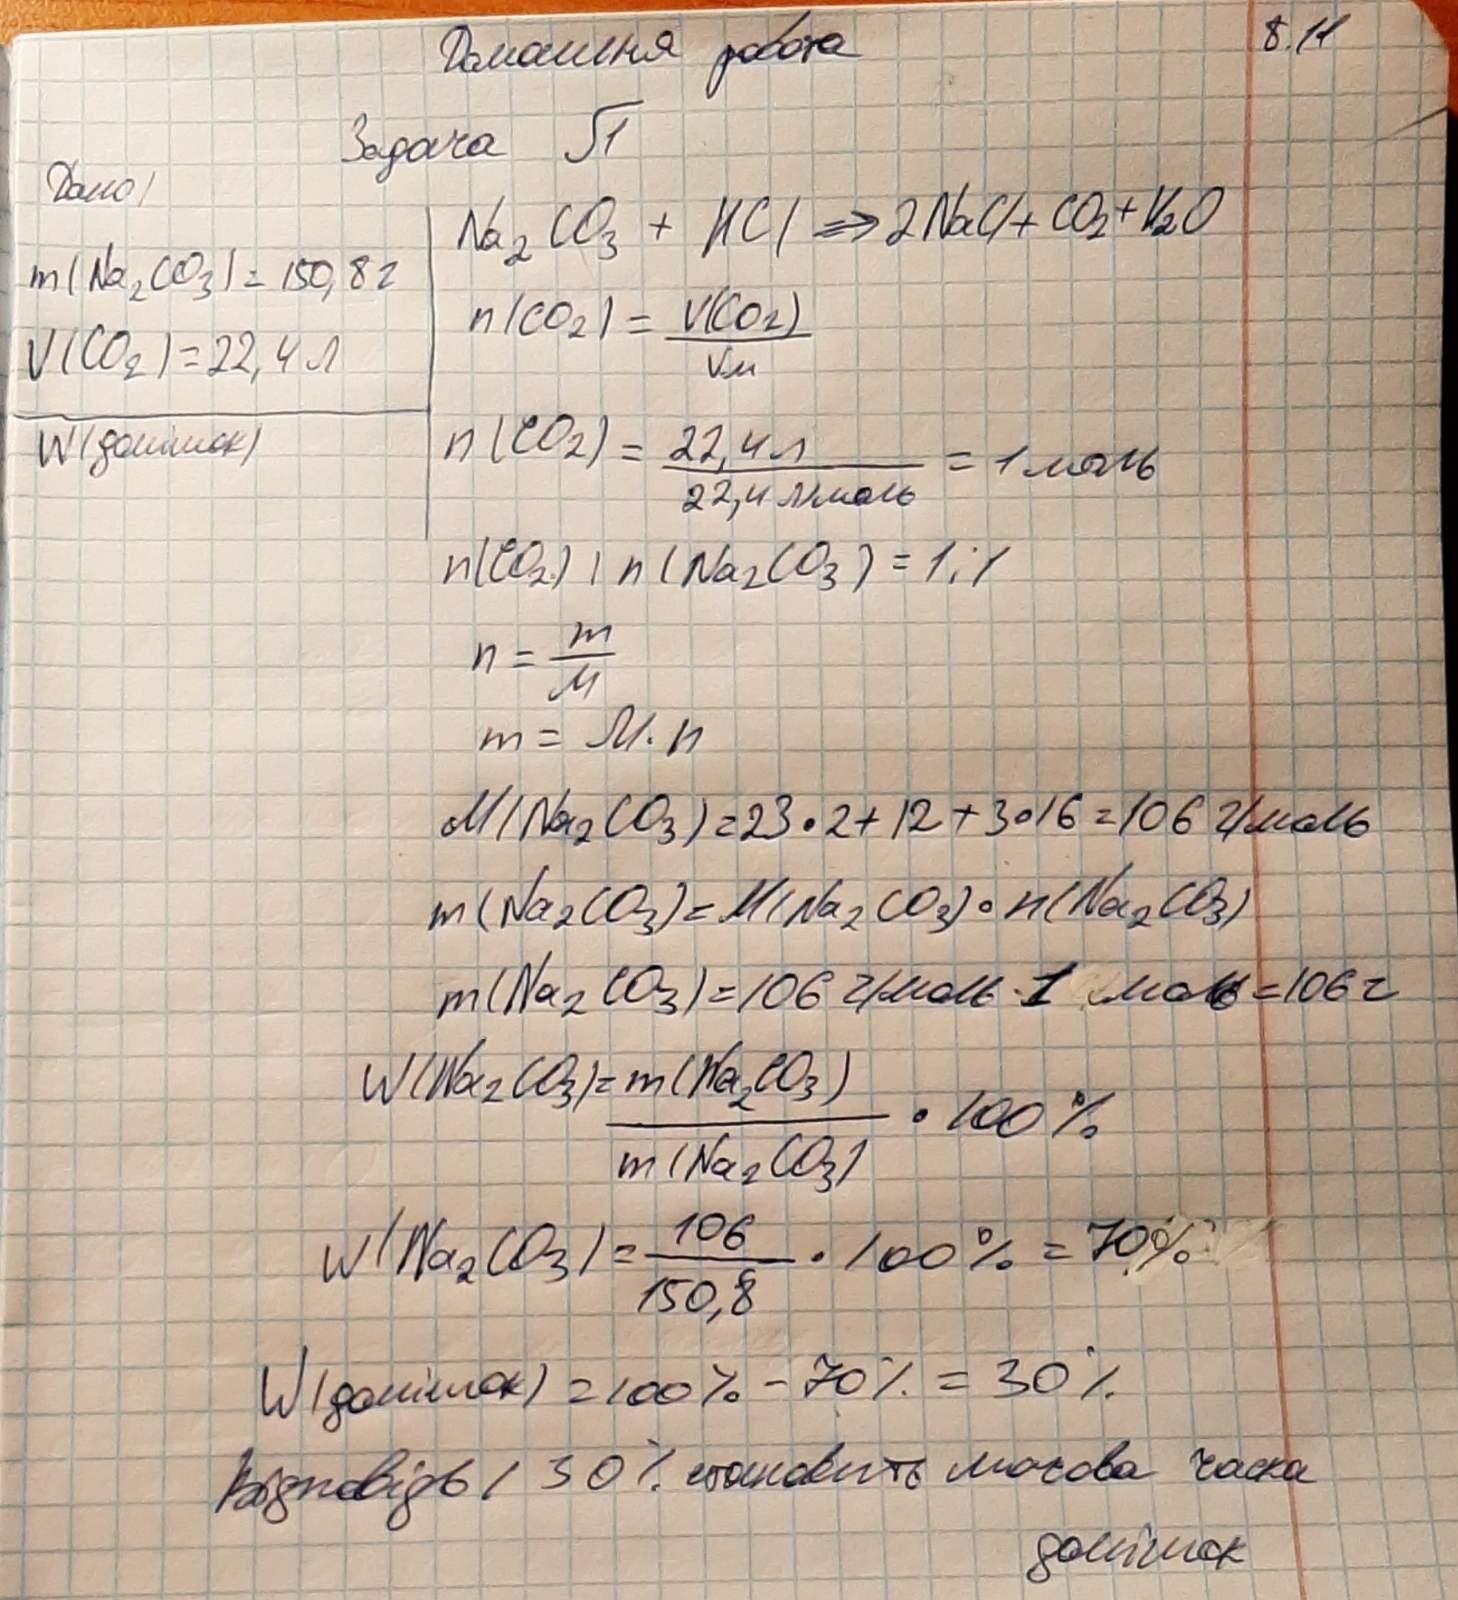 Домашня робота
8.11
Задача √1
Дано/
m(Na₂CO₃)=150,8г
V(CO₂)=22,4л
W(домішок)
Na₂CO₃ + HCl ⇒ 2NaCl + CO₂ + H₂O
n(CO₂) = V(CO₂)/Vм
n(CO₂) = 22,4л/22,4л/моль = 1 моль
n(CO₂) : n(Na₂CO₃) = 1:1
n = m/M
m = M·n
M(Na₂CO₃)=23•2+12+3•16=106 г/моль
m(Na₂CO₃)=M(Na₂CO₃)•n(Na₂CO₃)
m(Na₂CO₃)=106 г/моль·1 моль=106г
W(Na₂CO₃)=m(Na₂CO₃)/m(Na₂CO₃) • 100%
W(Na₂CO₃)=106/150,8 • 100% = 70%
W(домішок) = 100% - 70% = 30%
Відповідь / 30% становить масова часка
домішок